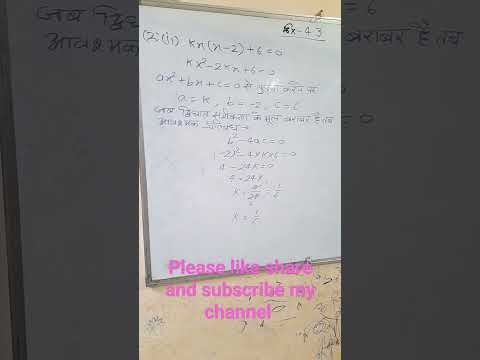 Ex-4.3
(2)(ii) Kx(x-2)+6=0
Kx²-2Kx+6=0
ax²+bx+c=0 से तुलना करने पर
a=K, b=-2, c=6
जब द्विघात समीकरण के मूल बराबर है तब
आवश्यक प्रतिबंध
b²-4ac=0
(-2)²-4×K×6=0
4-24K=0
4=24K
K=4/24=1/6
K=1/6
जब
=6
बराबर है तब
आवश्यक
Please like share
and subscribe my
channel